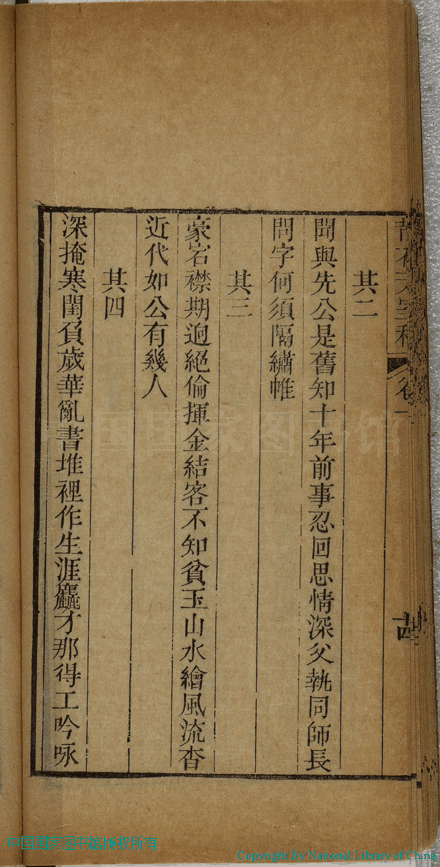 其二
聞與先公是舊知十年前事忍回思情深父執同師長
問字何須隔繡帷
其三
豪宕襟期迥絕倫揮金結客不知貧玉山水繪風流杳
近代如公有幾人
其四
深掩寒閨負歲華亂書堆裡作生涯麤才那得工吟咏
中國國家圖書館版权所有
Copyright By National Library of China